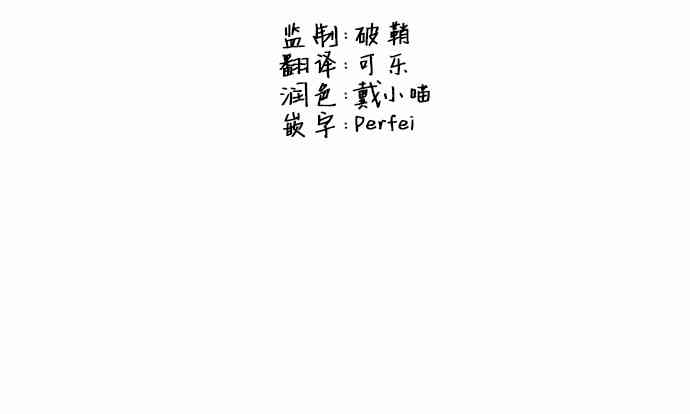 监制:破鞘
翻译:可乐
润色:戴小喵
嵌字:Perfei